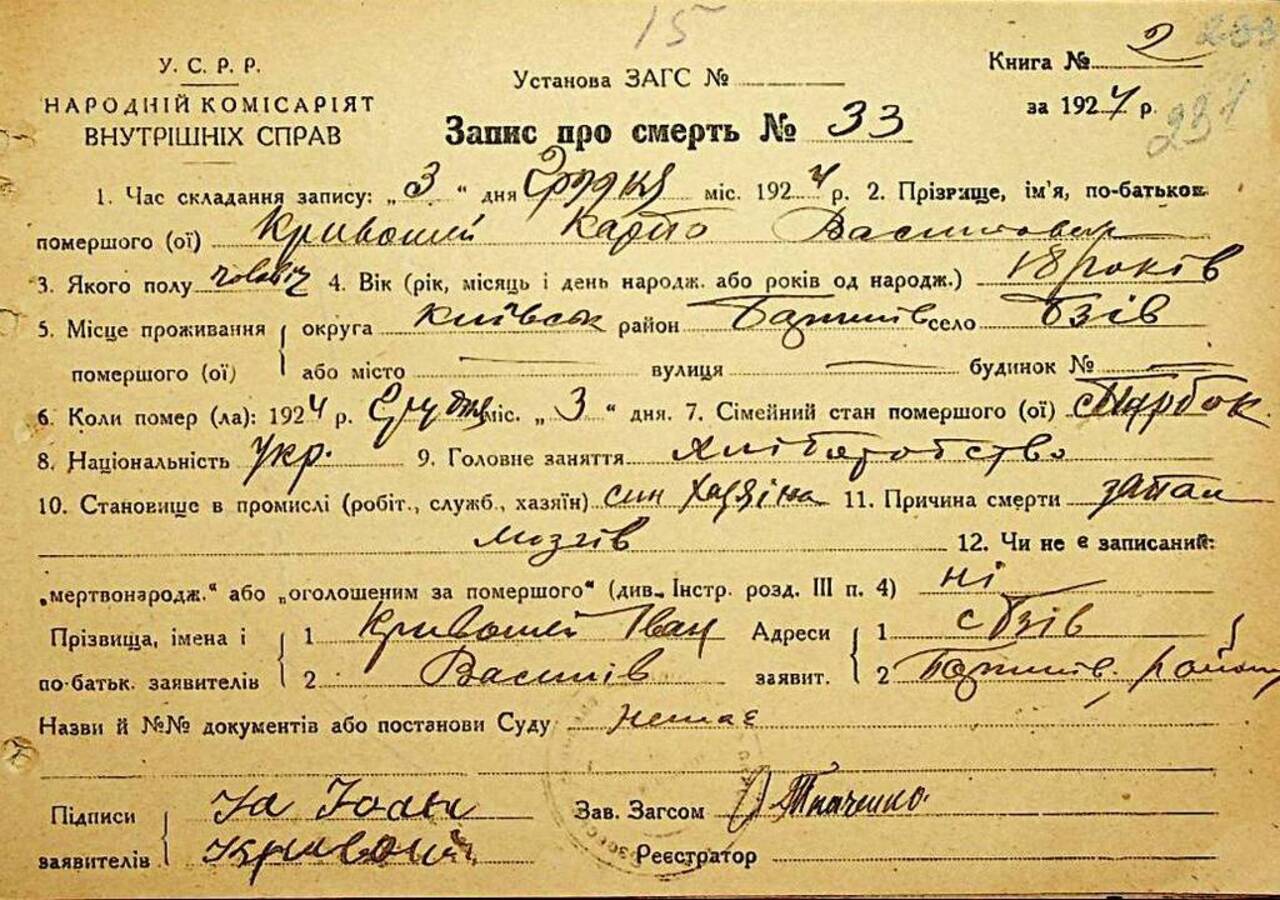 15
У. С. Р. Р.
НАРОДНІЙ КОМІСАРІЯТ
ВНУТРІШНІХ СПРАВ
Установа ЗАГС №
Книга № 2
за 1924 р.
231
Запис про смерть № 33
1. Час складання запису: „ 3 “ дня Грудня міс. 1924 р. 2. Прізвище, ім'я, по-батькові
помершого (ої) Кривошей Карпо Васильович
3. Якого полу 4. Вік (рік, місяць і день народж. або років од народж.) 18 років
5. Місце проживання помершого (ої) округа Київськ район Баришів село Бзів
або місто вулиця будинок №
6. Коли помер (ла): 1924 р. Грудня міс. „ 3 “ дня. 7. Сімейний стан помершого (ої) Парубок
8. Національність Укр. 9. Головне заняття Хліборобство
10. Становище в промислі (робіт., служб., хазяїн) син Хазяїна 11. Причина смерти запал
мозгів 12. Чи не є записаний:
„мертвонародж.“ або „оголошеним за помершого“ (див. Інстр. розд. III п. 4) ні
Прізвища, імена і по-батьк. заявителів 1 Кривошей Іван Адреси заявит. 1 с Бзів
2 Василів 2 Баришів. району
Назви й №№ документів або постанови Суду немає
Підписи заявителів Кривошій
Зав. Загсом Ткаченко
Реєстратор